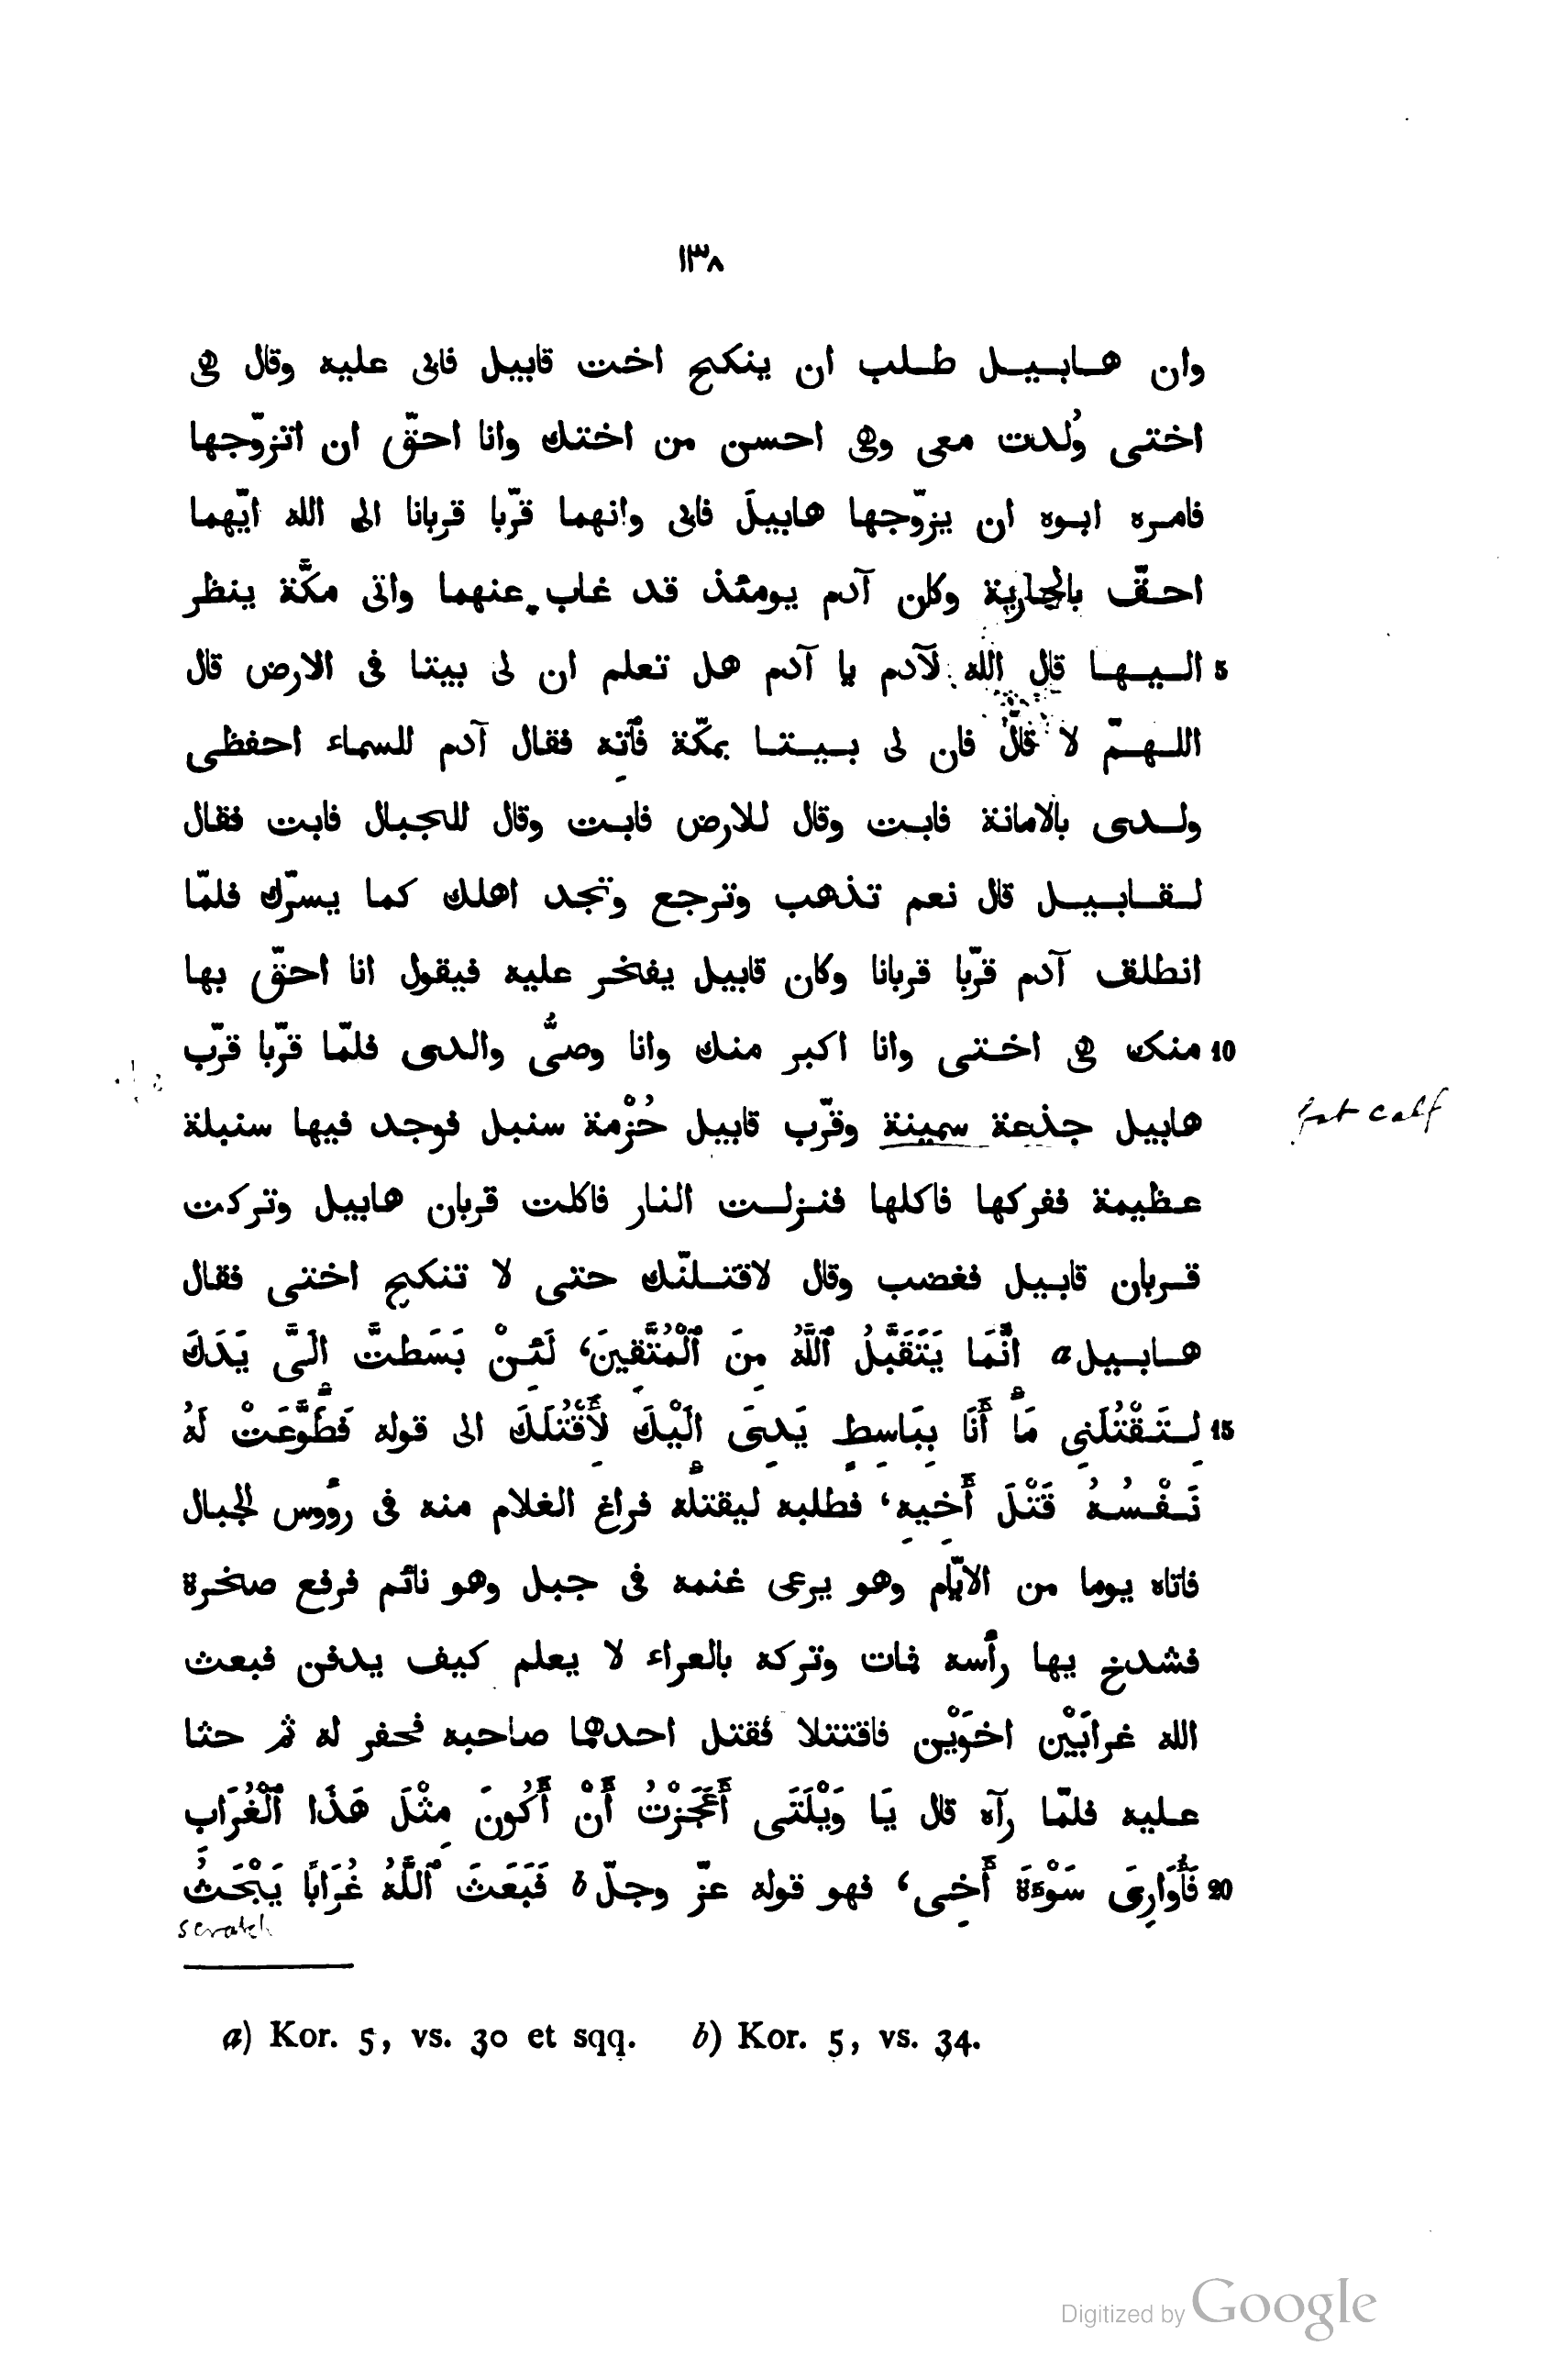 ١٣٨
وان هابيل طلب ان ينكح اخت قابيل فابى عليه وقال هى
اختى وُلدت معى وهى احسن من اختك وانا احقّ ان اتزوّجها
فامره ابوه ان يزوّجها هابيلَ فابى وانهما قرّبا قربانا الى الله ايّهما
احقّ بالجارية وكان آدم يومئذ قد غاب عنهما واتى مكّة ينظر
5 اليها قال الله لآدم يا آدم هل تعلم ان لى بيتا فى الارض قال
اللهمّ لا قال فان لى بيتا بمكّة فأتِه فقال آدم للسماء احفظى
ولدى بالامانة فابت وقال للارض فابت وقال للجبال فابت فقال
لقابيل قال نعم تذهب وترجع وتجد اهلك كما يسرّك فلمّا
انطلق آدم قرّبا قربانا وكان قابيل يفخر عليه فيقول انا احقّ بها
10 منك هى اختى وانا اكبر منك وانا وصىُّ والدى فلمّا قرّبا قرّب
هابيل جذعة سمينة وقرّب قابيل حُزْمة سنبل فوجد فيها سنبلة fat calf
عظيمة ففركها فاكلها فنزلت النار فاكلت قربان هابيل وتركت
قربان قابيل فغضب وقال لاقتلنّك حتى لا تنكح اختى فقال
هابيل a إِنَّمَا يَتَقَبَّلُ ٱللَّهُ مِنَ ٱلْمُتَّقِينَ، لَئِنْ بَسَطتَّ إِلَىَّ يَدَكَ
15 لِتَقْتُلَنِى مَا أَنَا بِبَاسِطٍ يَدِىَ إِلَيْكَ لِأَقْتُلَكَ الى قوله فَطَوَّعَتْ لَهُ
نَفْسُهُ قَتْلَ أَخِيهِ، فطلبه ليقتله فراغ الغلام منه فى رؤوس الجبال
فاتاه يوما من الايّام وهو يرعى غنمه فى جبل وهو نائم فرفع صخرة
فشدخ بها رأسه فمات وتركه بالعراء لا يعلم كيف يدفن فبعث
الله غرابَيْن اخوَيْن فاقتتلا فقتل احدهما صاحبه فحفر له ثم حثا
عليه فلمّا رآه قال يَا وَيْلَتَى أَعَجَزْتُ أَنْ أَكُونَ مِثْلَ هَذَا ٱلْغُرَابِ
20 فَأُوَارِىَ سَوْءَةَ أَخِى، فهو قوله عزّ وجلّ b فَبَعَثَ ٱللَّهُ غُرَابًا يَبْحَثُ
scratch
a) Kor. 5, vs. 30 et sqq. b) Kor. 5, vs. 34.
Digitized by Google